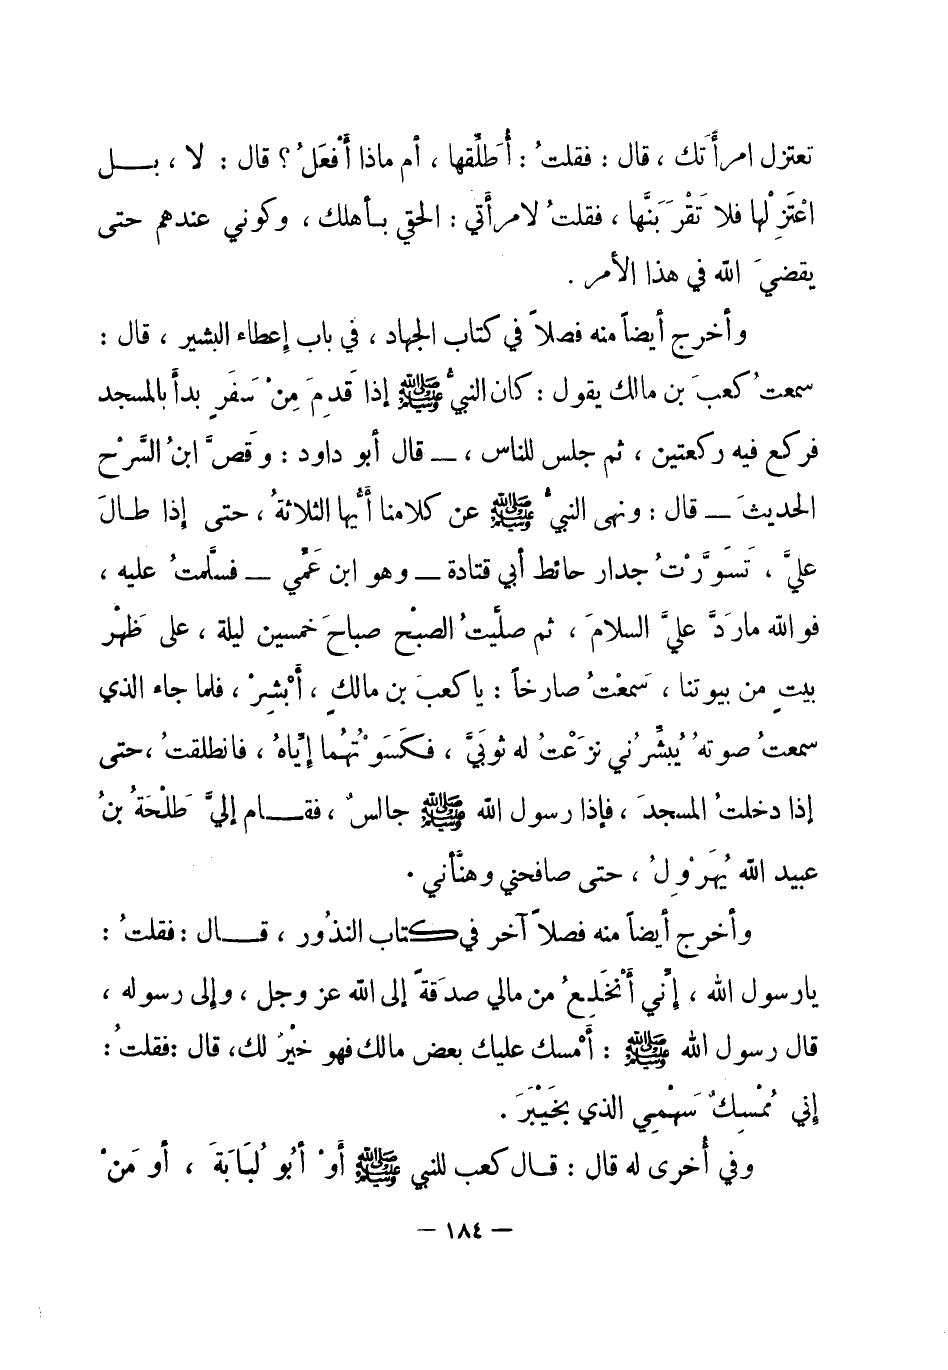 تعتزل امرأَتك ، قال : فقلتُ : أُطَلِّقها ، أم ماذا أَفْعَلُ ؟ قال : لا ، بــل
اعْتَزِلْها فلا تَقْرَبَنَّها ، فقلتُ لامرأَتي : الحقي بـأهلك ، وكوني عندهم حتى
يقضيَ الله في هذا الأمر .
وأخرج أيضاً منه فصلاً في كتاب الجهاد ، في باب إعطاء البشير ، قال :
سمعتُ كعبَ بن مالك يقول : كان النبيُّ ﷺ إذا قَدِمَ مِنْ سَفَرٍ بدأَ بالمسجد
فركع فيه ركعتين ، ثم جلس للناس ، ـــ قال أبو داود : وقَصَّ ابنُ السَّرْح
الحديثَ ـــ قال : ونهى النبيُّ ﷺ عن كلامنا أَيُّها الثلاثةُ ، حتى إذا طـالَ
عليَّ ، تَسَوَّرْتُ جدار حائط أبي قتادة ـــ وهو ابن عَمِّي ـــ فسلَّمتُ عليه ،
فوالله ماردَّ عليَّ السلامَ ، ثم صلَّيتُ الصبْح صباحَ خمسين ليلة ، على ظَهْر
بيتٍ من بيوتنا ، سَمِعْتُ صارخاً : ياكعبَ بن مالكٍ ، أَبْشِرْ ، فلما جاء الذي
سمعتُ صوتهُ يُبَشِّرُني نزَعْتُ له ثوبَيَّ ، فـكَسَوْتُهُما إيَّاهُ ، فانطلقتُ ،حتى
إذا دخلتُ المسجدَ ، فإذا رسول الله ﷺ جالسٌ ، فقــام إليَّ طَلْحَةُ بنُ
عبيد الله يُهَرْوِلُ ، حتى صافحني وهنَّأني .
وأخرج أيضاً منه فصلاً آخر في كتاب النذُور ، قــال : فقلتُ :
يارسول الله ، إنِّي أَنْخَلِعُ من مالي صدَقةً إلى الله عز وجل ، وإلى رسوله ،
قال رسول الله ﷺ : أَمْسك عليك بعض مالك فهو خيْرٌ لك، قال :فقلتُ :
إني مُمْسِكٌ سَهْمِي الذي بخَيْبَرَ .
وفي أُخرى له قال : قـال كعب للنبي ﷺ أَوْ أبُو لُبَابَةَ ، أو مَنْ
— ١٨٤ —